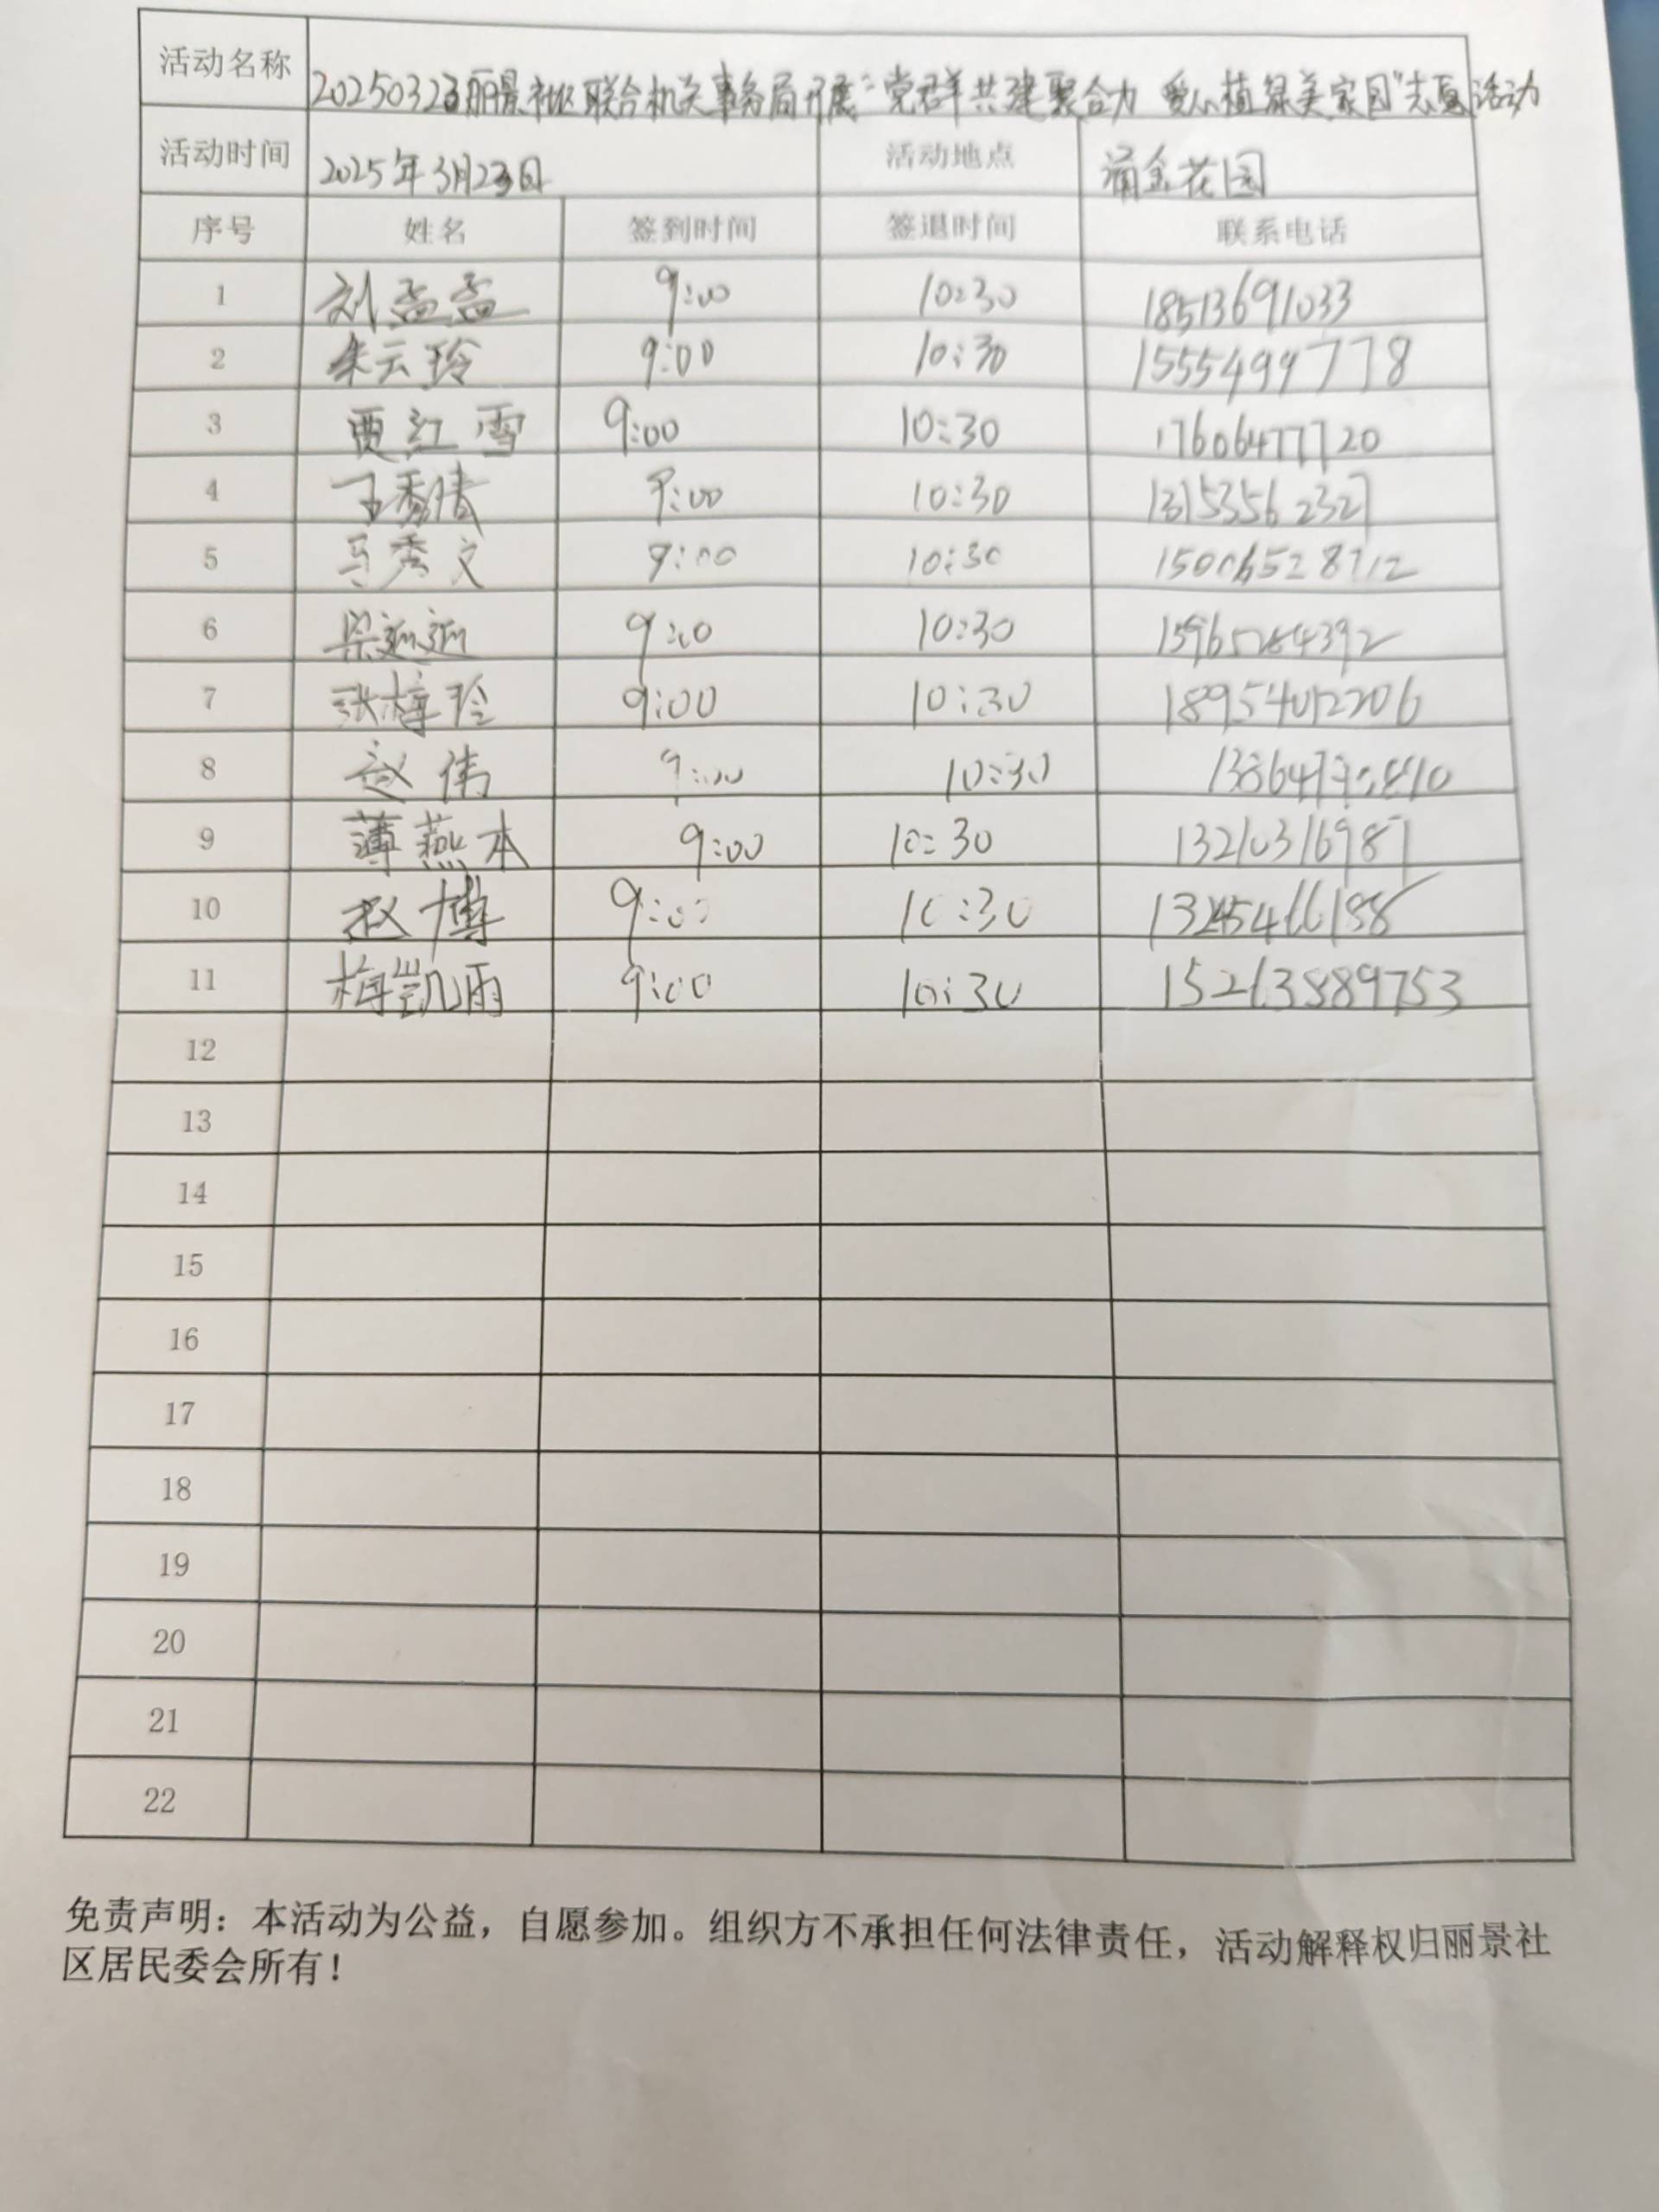 活动名称 20250323丽景社区联合机关事务局开展“党群共建聚合力 爱心植绿美家园”志愿活动
活动时间 2025年3月23日 活动地点 蒲金花园
序号 姓名 签到时间 签退时间 联系电话
1 刘孟孟 9:00 10:30 18513691033
2 朱云玲 9:00 10:30 15554999778
3 贾红雪 9:00 10:30 17606477720
4 王秀倩 9:00 10:30
5 马秀文 9:00 10:30
6 梁 9:00 10:30
7 张梓玲 9:00 10:30
8 赵伟 9:00 10:30
9 薄燕本 9:00 10:30 13210316987
10 赵博 9:00 10:30
11 梅凯雨 9:00 10:30 15263889753
12
13
14
15
16
17
18
19
20
21
22
免责声明：本活动为公益，自愿参加。组织方不承担任何法律责任，活动解释权归丽景社
区居民委会所有！